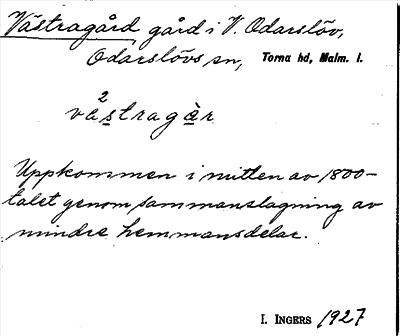 Västragård gård i V. Odarslöv,
Odarslövs sn, Torna hd, Malm. l.
2
våstragær
Uppkommen i mitten av 1800-
talet genom sammanslagning av
mindre hemmansdelar.
I. INGERS 1927